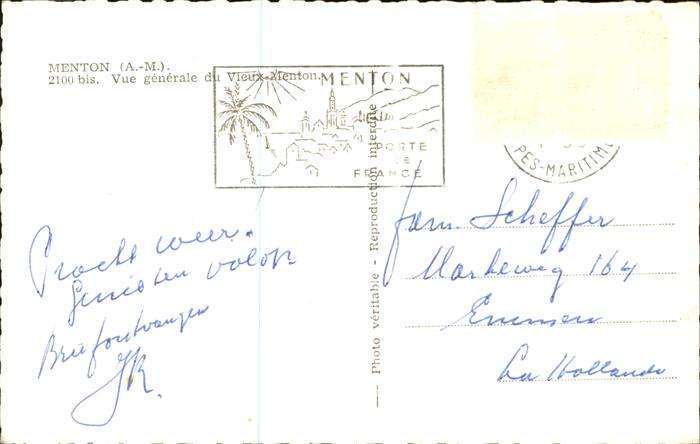 MENTON (A.-M.).
2100 bis. Vue générale du Vieux-Menton.
MENTON
PORTE
DE
FRANCE
PES-MARITIM
Photo véritable - Reproduction interdite
Pracht weer.
Genieten volop
Brief ontvangen
JR.
fam. Scheffer
Markeweg 164
Emmen
La Hollande